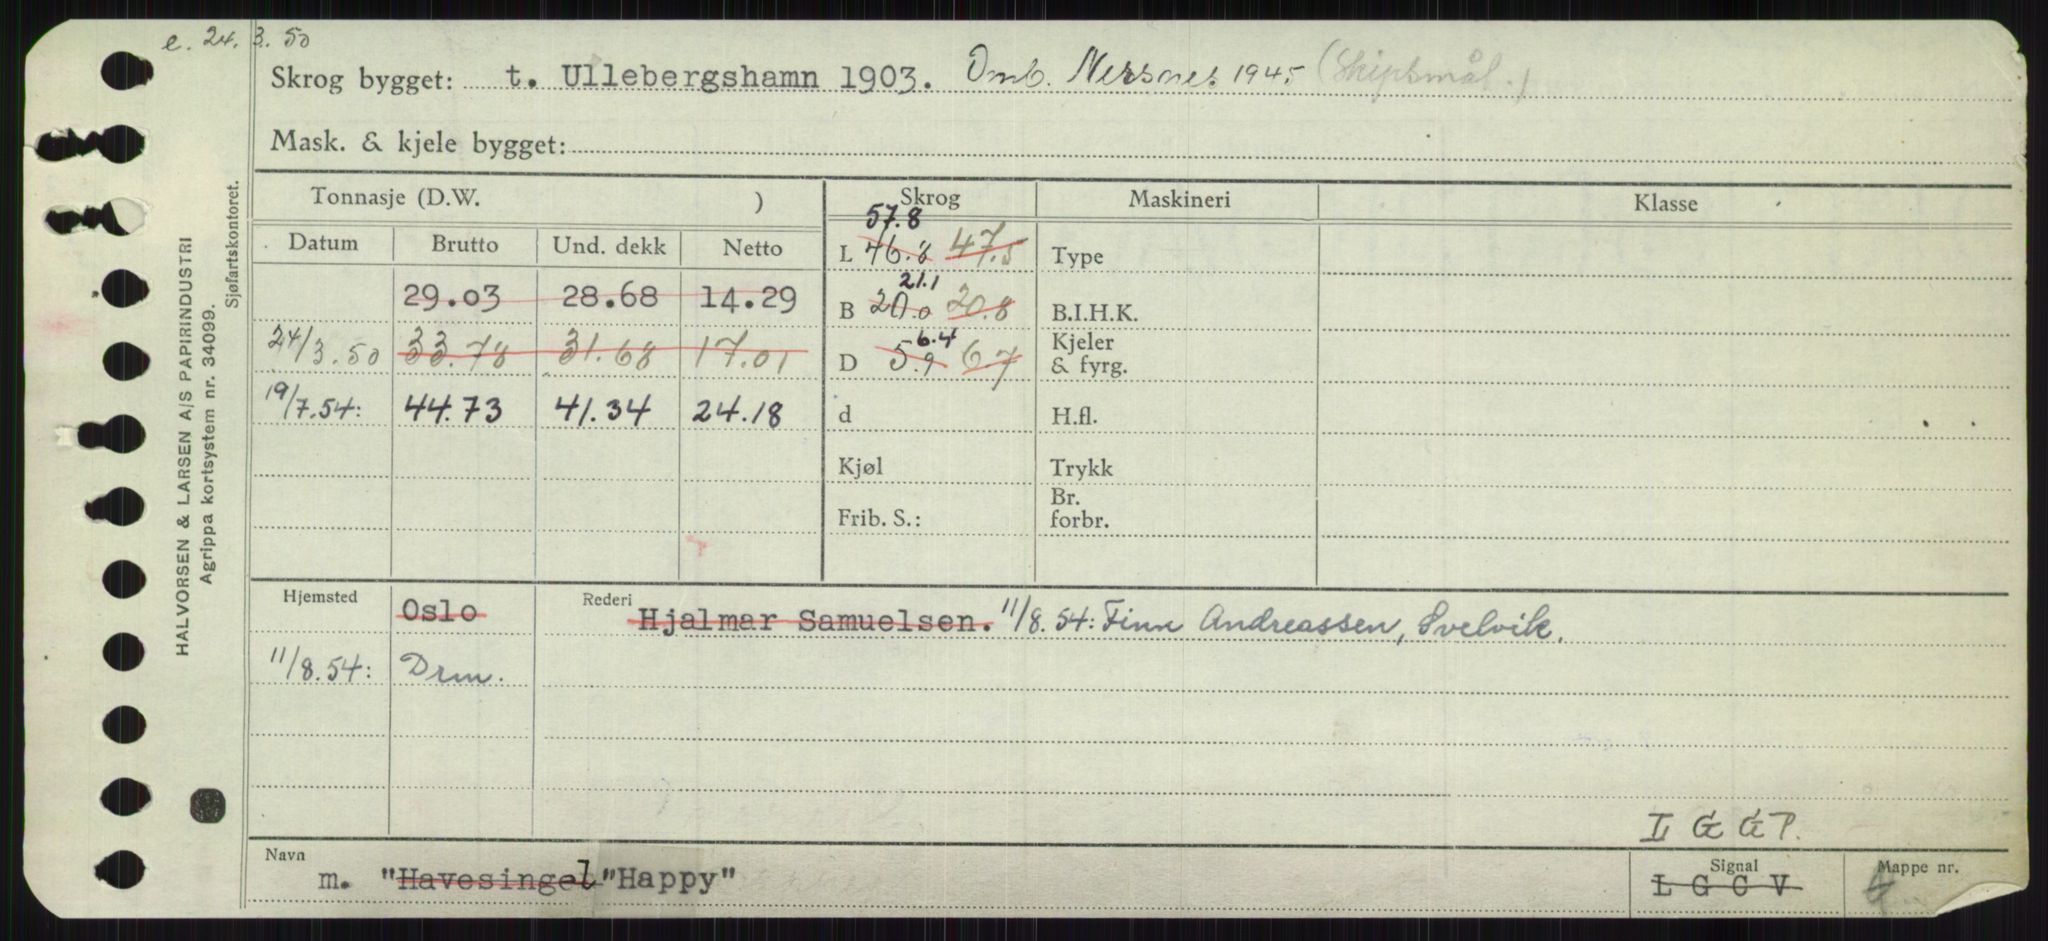 e. 24. 3. 50
Skrog bygget: t. Ullebergshamn 1903. Omb. Nersnes 1945 (Skipsmål.)
Mask. & kjele bygget:
Tonnasje (D.W. ) Skrog Maskineri Klasse
Datum Brutto Und. dekk Netto
57.8
L 46.8 47.5 Type
29.03 28.68 14.29
21.1
B 20.0 20.8 B.I.H.K.
24/3.50 33.78 31.68 17.01
6.4
D 5.9 6.7 Kjeler & fyrg.
19/7.54: 44.73 41.34 24.18
d H.fl.
Kjøl Trykk
Frib. S.: Br. forbr.
Hjemsted Oslo Rederi Hjalmar Samuelsen. 11/8.54: Finn Andreassen, Svelvik.
11/8.54: Drm.
L G G P.
Navn m. "Havesingel "Happy" Signal L G C V Mappe nr. 4
HALVORSEN & LARSEN A/S PAPIRINDUSTRI
Agrippa kortsystem nr. 34099.
Sjøfartskontoret.